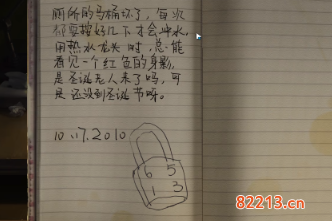 厕所的马桶坏了，每次
都要按好几下才会冲水，
用热水龙头时，总能
看见一个红色的身影，
是圣诞老人来了吗，可
是还没到圣诞节呀。
10.17.2010
6 5
1 3
82213.cn